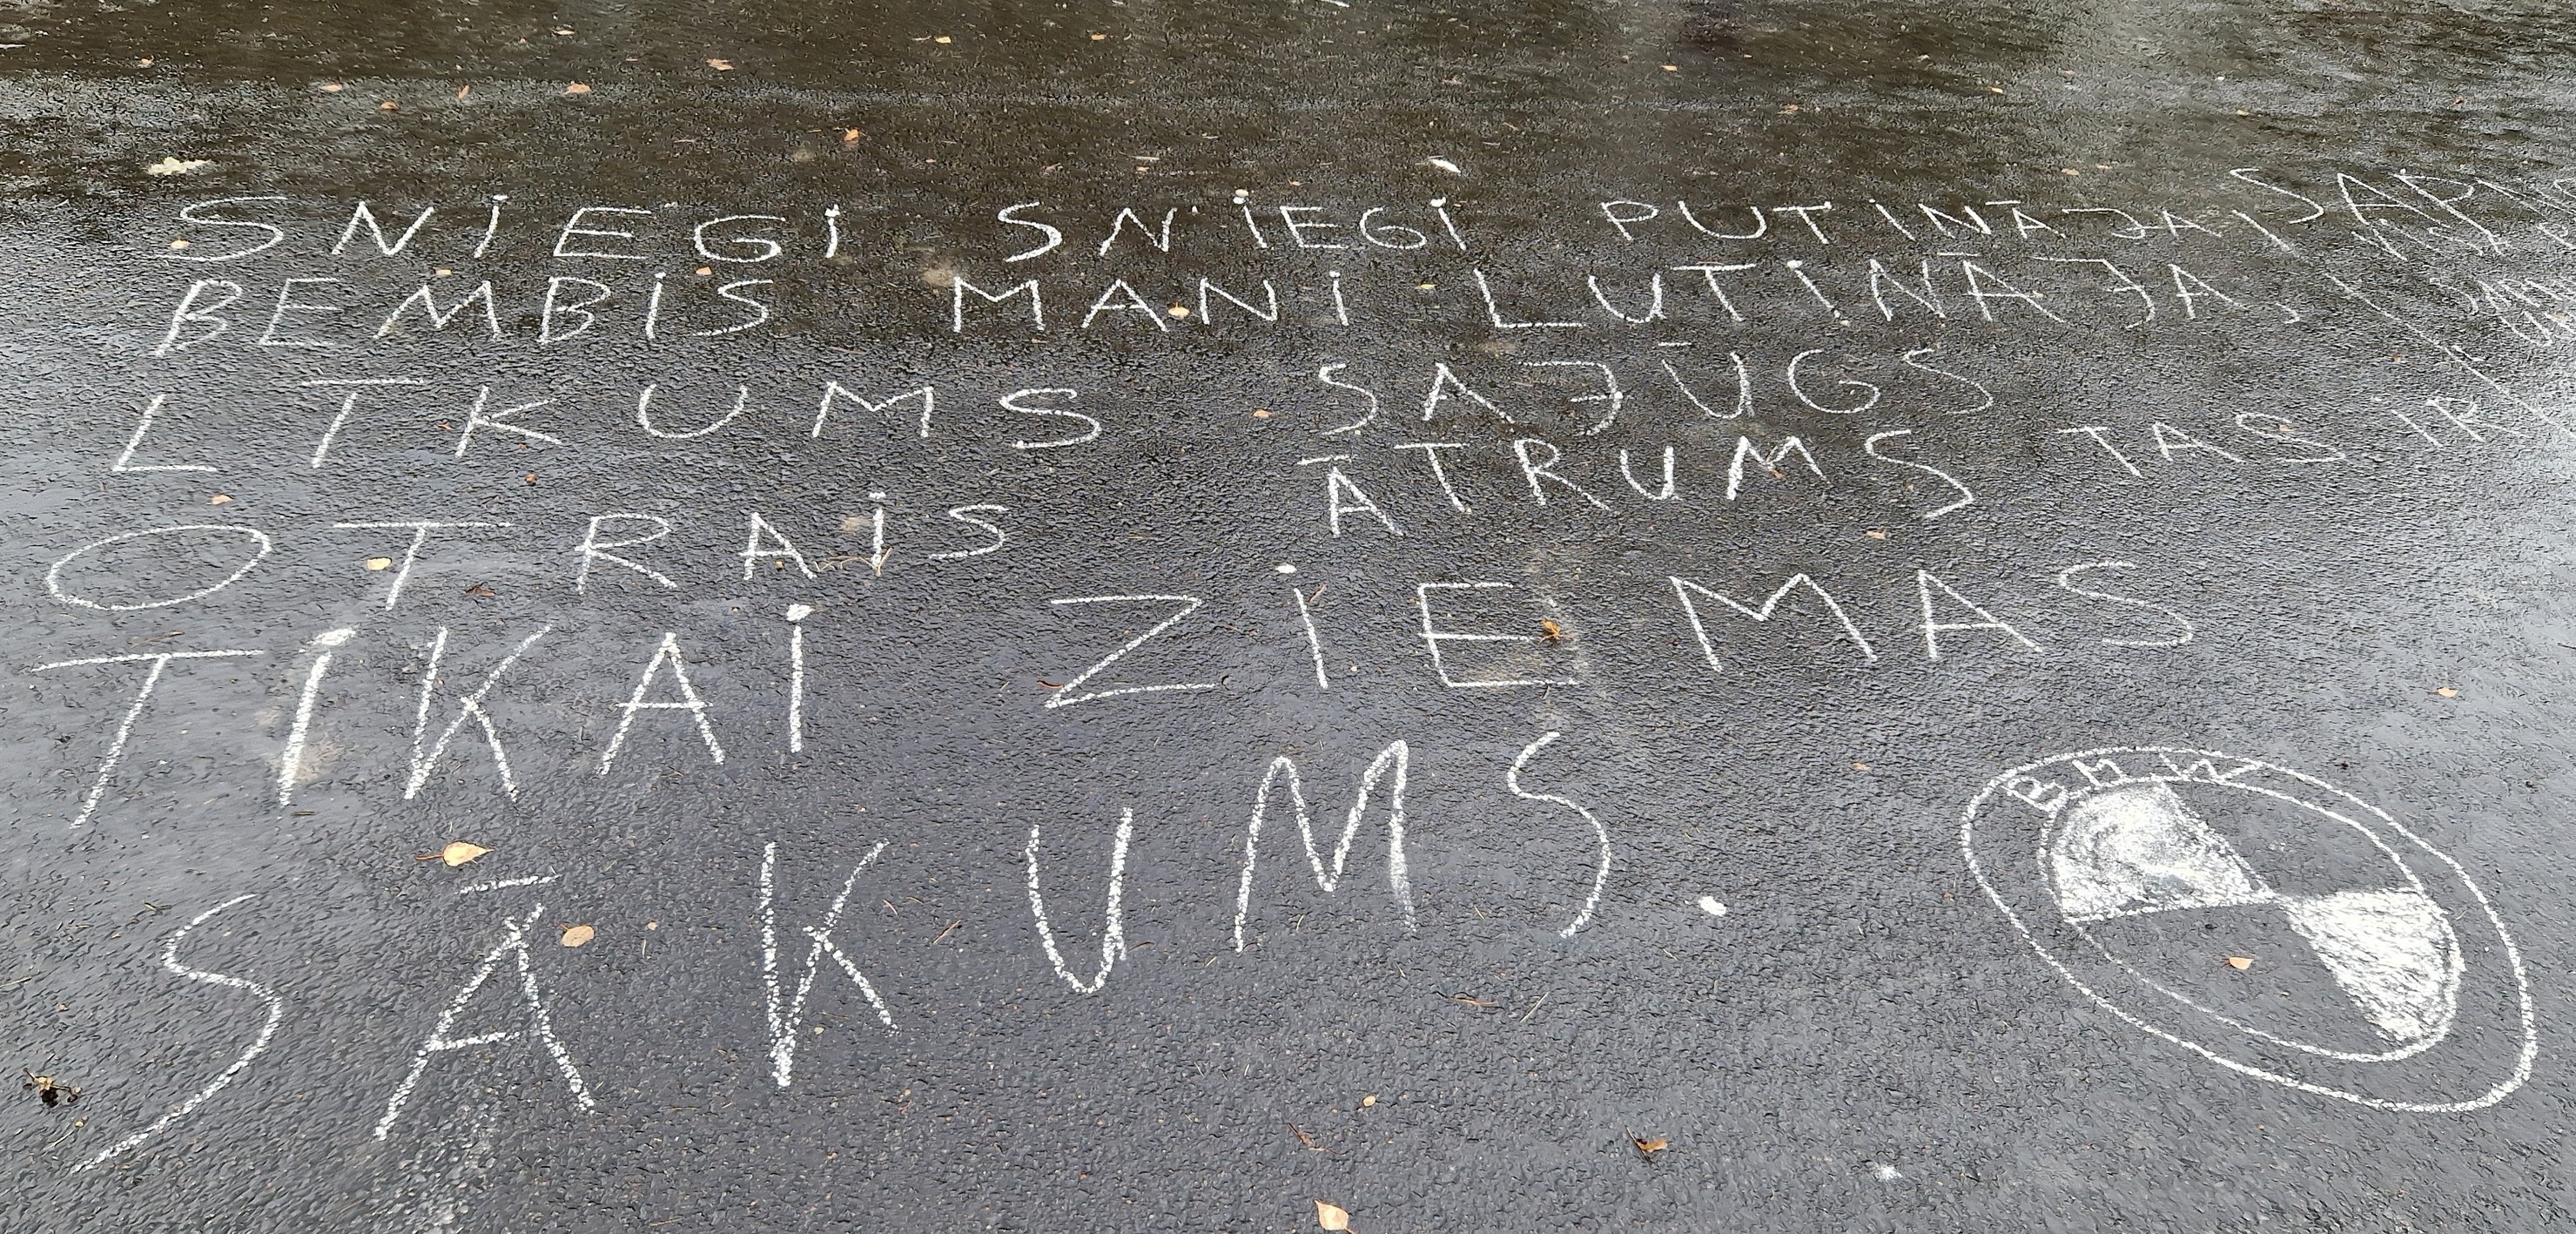 SNIEGI SNIEGI PUTINĀJA
BEMBIS MANI LUTINĀJA,
LTKUMS SAJŪGS
OTRAIS ĀTRUMS TAS IR
TIKAI ZIEMAS
SĀKUMS.
BMW